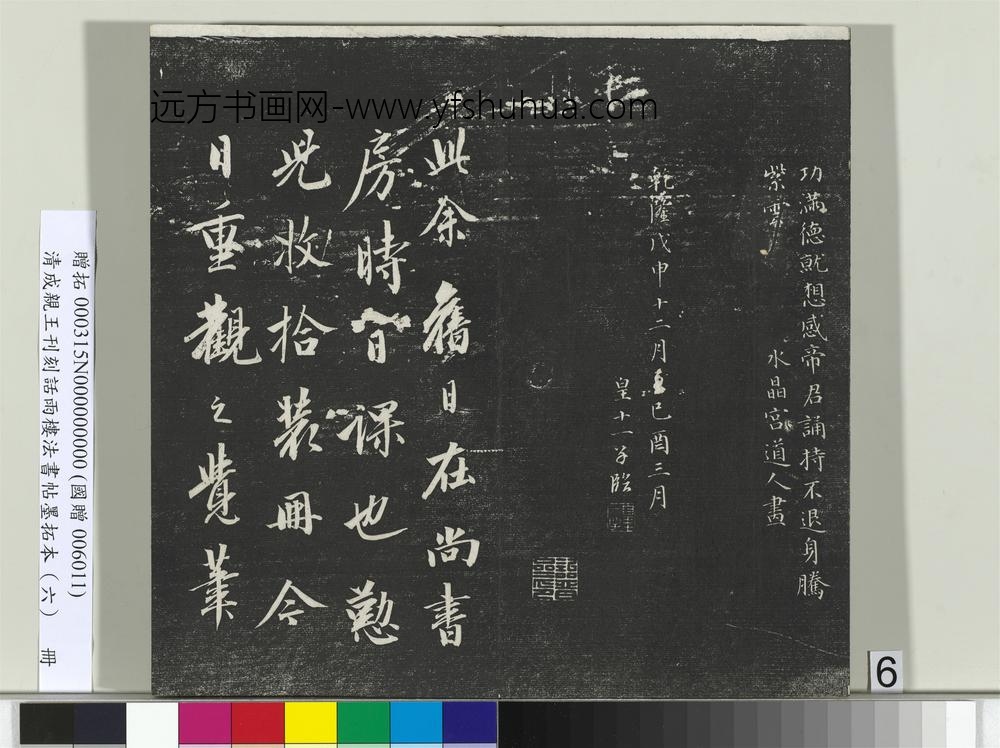 远方书画网-www.yfshuhua.com
功滿德就想感帝君誦持不退身騰
紫霄
水晶宮道人書
乾隆戊申十二月至己酉三月
皇十一子臨
此余舊日在尚書
房時日課也懃
兒收拾裝冊今
日重觀之覺筆
贈拓 000315N000000000 (國贈 006011)
清成親王刊刻話雨樓法書帖墨拓本(六) 冊
6